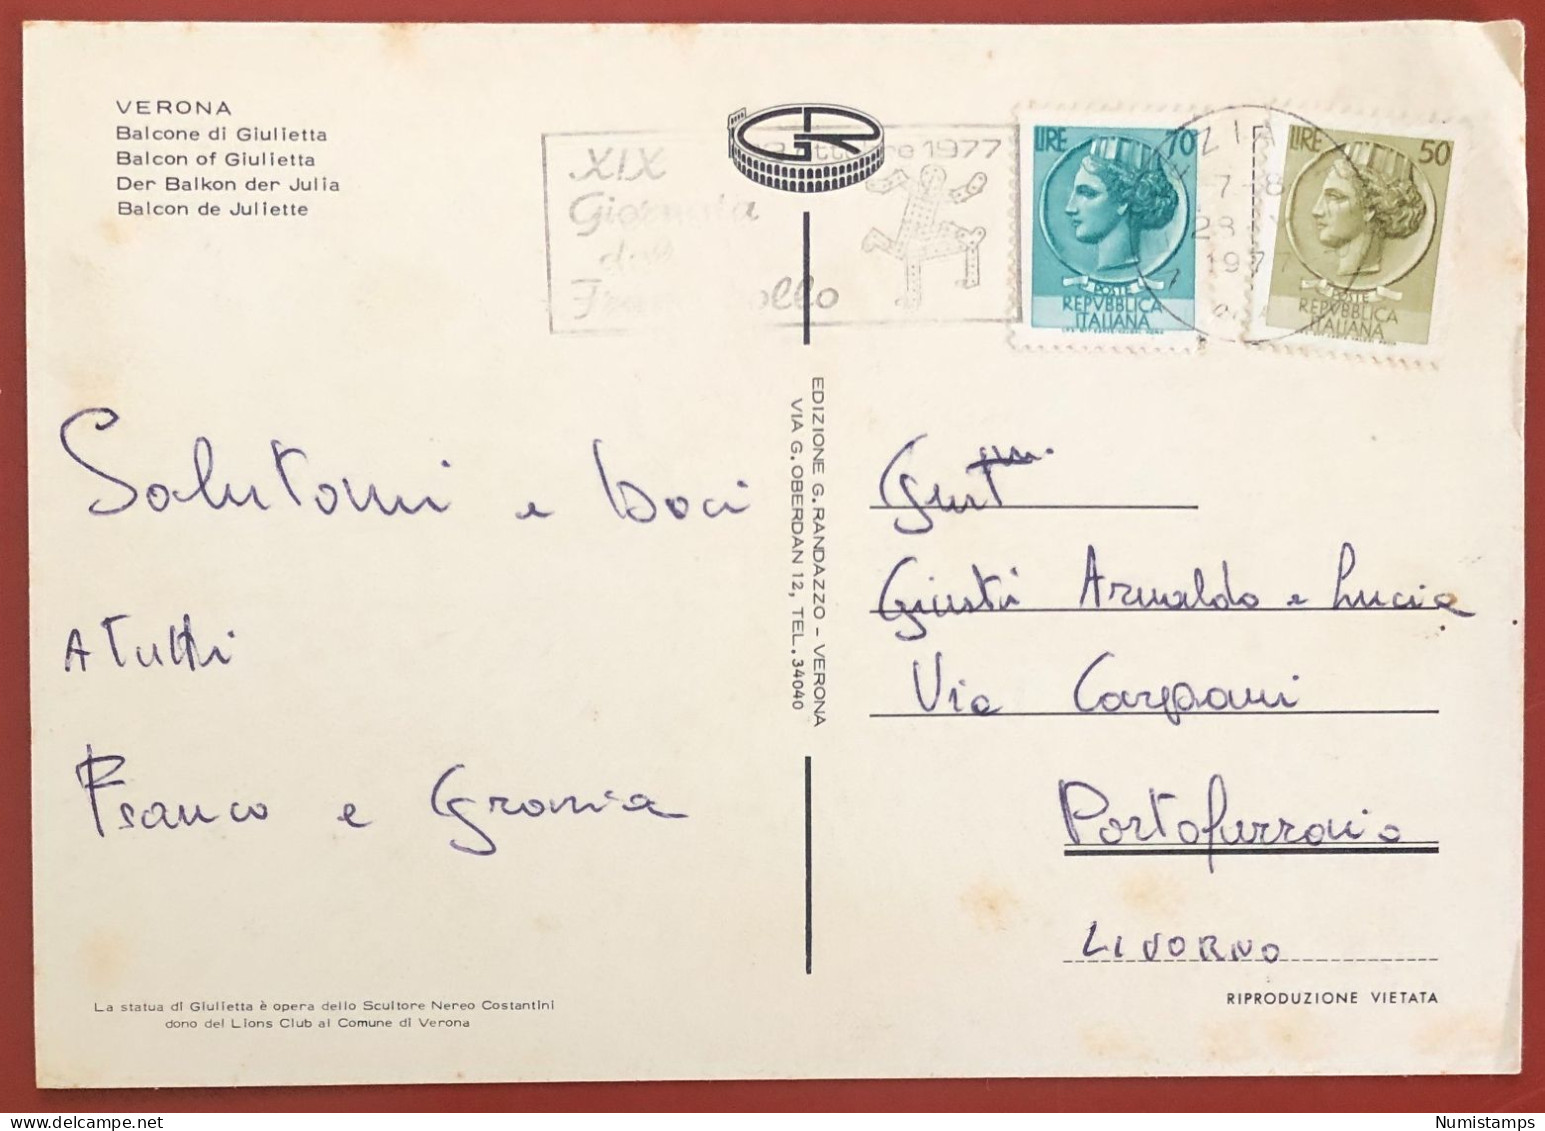 VERONA
Balcone di Giulietta
Balcon of Giulietta
Der Balkon der Julia
Balcon de Juliette
XIX
Giornata
1977
LIRE 70
POSTE
REPVBBLICA
ITALIANA
LIRE 50
POSTE
REPVBBLICA
ITALIANA
7-8
1977
Salutoni e baci
A Tutti
Franco e Gronia
EDIZIONE G. RANDAZZO - VERONA
VIA G. OBERDAN 12, TEL. 34040
Giusti Arnaldo e Lucia
Via Carpani
Portoferraio
LIVORNO
La statua di Giulietta è opera dello Scultore Nereo Costantini
dono del Lions Club al Comune di Verona
RIPRODUZIONE VIETATA
Numistamps